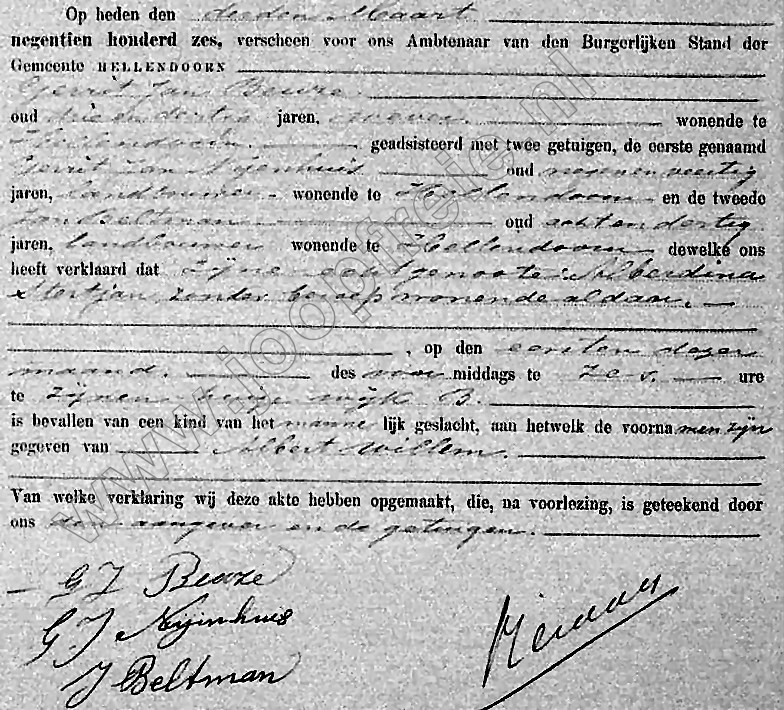 Op heden den derden Maart
negentien honderd zes, verscheen voor ons Ambtenaar van den Burgerlijken Stand der
Gemeente HELLENDOORN
Gerrit Jan
oud drie en dertig jaren, wever wonende te
Hellendoorn. geadsisteerd met twee getuigen, de eerste genaamd
Gerrit Jan Nijenhuis oud negenenveertig
jaren, landbouwer wonende te Hellendoorn en de tweede
Jan Beltman oud achtendertig
jaren, landbouwer wonende te Hellendoorn dewelke ons
heeft verklaard dat zijne echtgenoote: Alberdina
zonder beroep wonende aldaar.
, op den eersten dezer
maand. des voor middags te zes. ure
te zijnen huize wijk B.
is bevallen van een kind van het manne lijk geslacht, aan hetwelk de voorna men zijn
gegeven van Albert Willem.
Van welke verklaring wij deze akte hebben opgemaakt, die, na voorlezing, is geteekend door
ons den aangever en de getuigen.
G J
G J Nijinhuis
J Beltman
www.joopfreie.nl